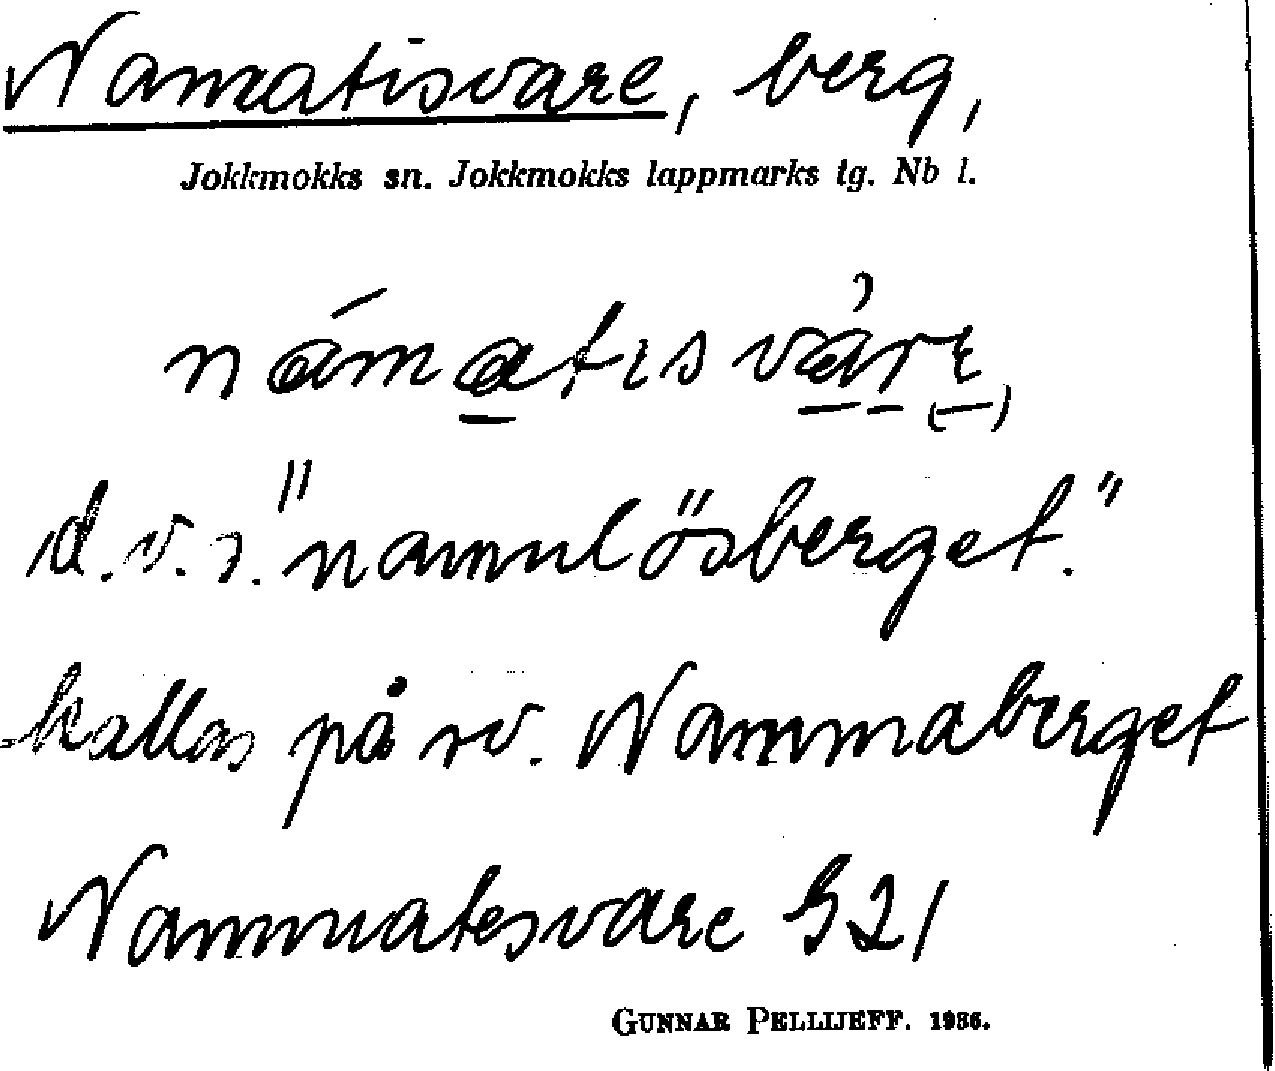 Namatisvare, berg,
Jokkmokks sn. Jokkmokks lappmarks tg. Nb l.
námatisvàrε
d.v.s. "namnlösberget."
kallas på sv. Nammaberget
Nammatesvare G21
GUNNAR PELLIJEFF. 1936.